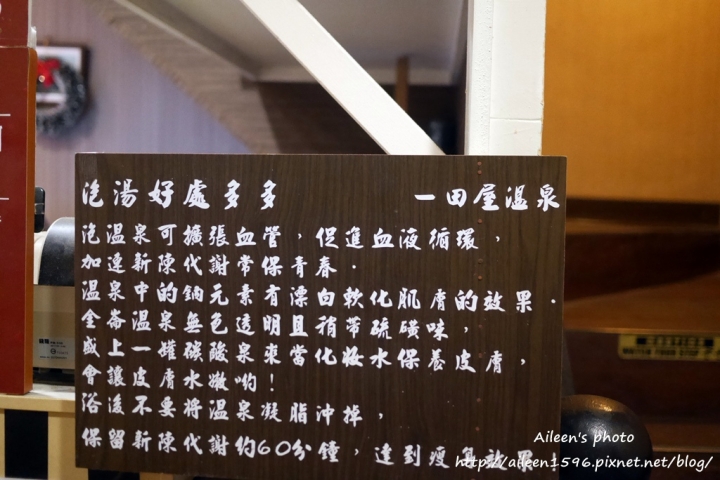 泡湯好處多多 一田屋溫泉
泡溫泉可擴張血管，促進血液循環，
加速新陳代謝常保青春．
溫泉中的鈉元素有漂白軟化肌膚的效果．
金崙溫泉無色透明且稍帶硫磺味，
盛上一罐碳酸泉來當化妝水保養皮膚，
會讓皮膚水嫩喲！
浴後不要將溫泉凝脂沖掉，
保留新陳代謝約60分鐘，達到瘦身效果！
Aileen's photo
http://aileen1596.pixnet.net/blog/